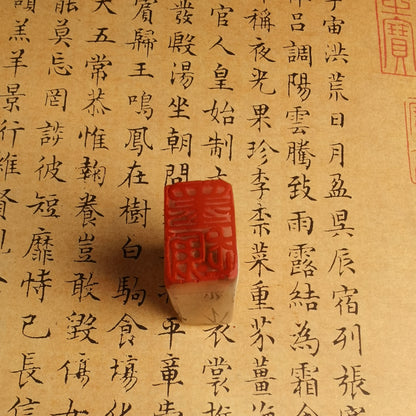 宇宙洪荒日月盈昃辰宿列張
呂調陽雲騰致雨露結為霜金
稱夜光果珍李柰菜重芥薑海
官人皇始制 衣裳推
發殷湯坐朝問 平章愛
賓歸王鳴鳳在樹白駒食場化
大五常恭惟鞠養豈敢毀傷女
能莫忘罔談彼短靡恃己長信
羔羊景行維賢